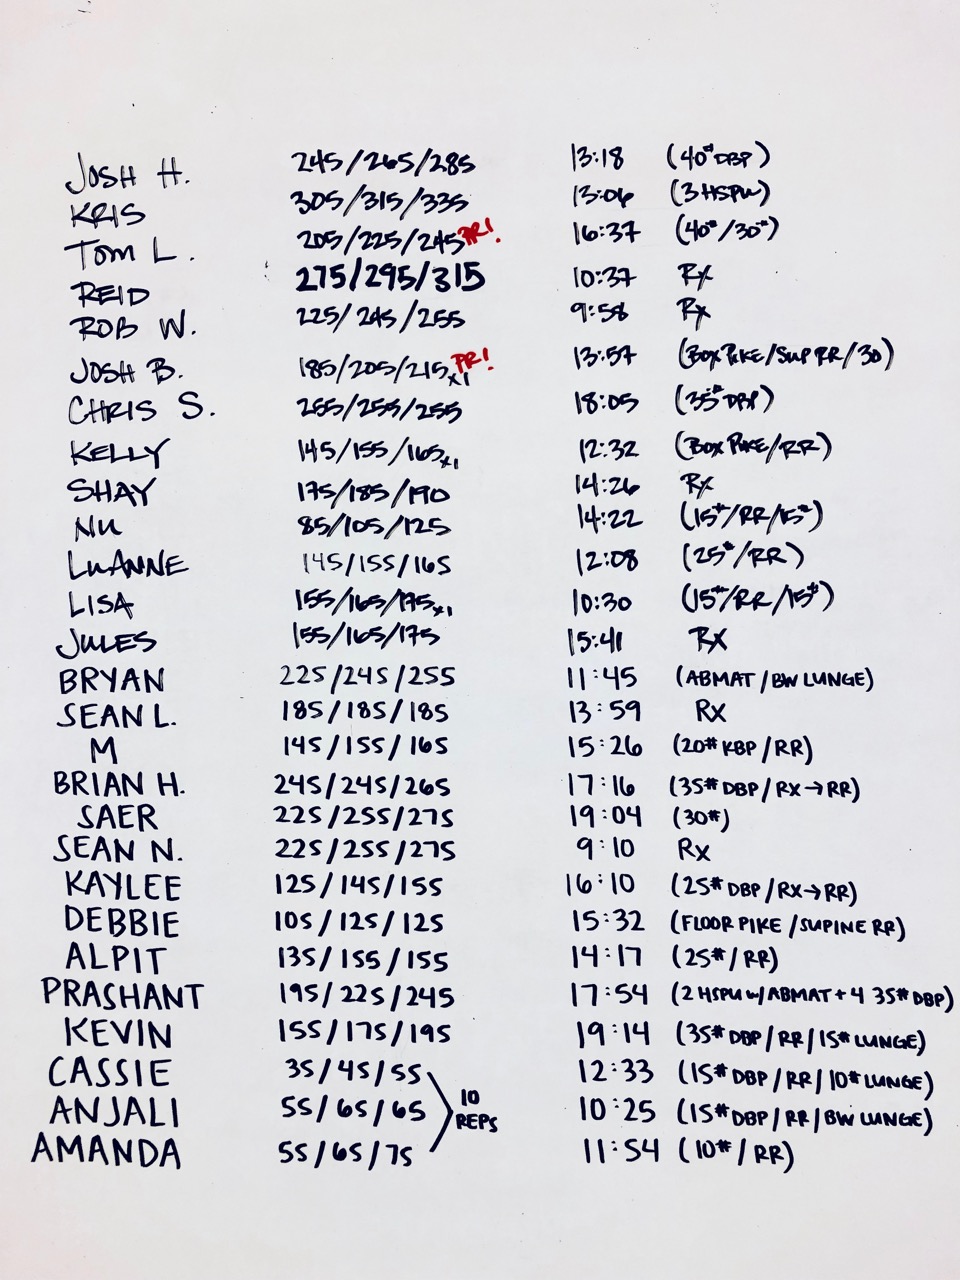 JOSH H. 245/265/285 13:18 (40# DBP)
KRIS 305/315/335 13:06 (3 HSPU)
TOM L. 205/225/245 PR! 16:37 (40#/30#)
REID 275/295/315 10:37 Rx
ROB W. 225/245/255 9:58 Rx
JOSH B. 185/205/215x1 PR! 13:57 (BOX PIKE/SUP RR/30)
CHRIS S. 255/255/255 18:05 (35# DBP)
KELLY 145/155/165x1 12:32 (BOX PIKE/RR)
SHAY 175/185/190 14:26 Rx
NU 85/105/125 14:22 (15#/RR/15#)
LUANNE 145/155/165 12:08 (25#/RR)
LISA 155/165/175x1 10:30 (15#/RR/15#)
JULES 155/165/175 15:41 RX
BRYAN 225/245/255 11:45 (ABMAT/BW LUNGE)
SEAN L. 185/185/185 13:59 RX
M 145/155/165 15:26 (20# KBP/RR)
BRIAN H. 245/245/265 17:16 (35# DBP/RX→RR)
SAER 225/255/275 19:04 (30#)
SEAN N. 225/255/275 9:10 Rx
KAYLEE 125/145/155 16:10 (25# DBP/RX→RR)
DEBBIE 105/125/125 15:32 (FLOOR PIKE/SUPINE RR)
ALPIT 135/155/155 14:17 (25#/RR)
PRASHANT 195/225/245 17:54 (2 HSPU W/ABMAT + 4 35# DBP)
KEVIN 155/175/195 19:14 (35# DBP/RR/15# LUNGE)
CASSIE 35/45/55 12:33 (15# DBP/RR/10# LUNGE)
ANJALI 55/65/65 10 REPS 10:25 (15# DBP/RR/BW LUNGE)
AMANDA 55/65/75 11:54 (10#/RR)